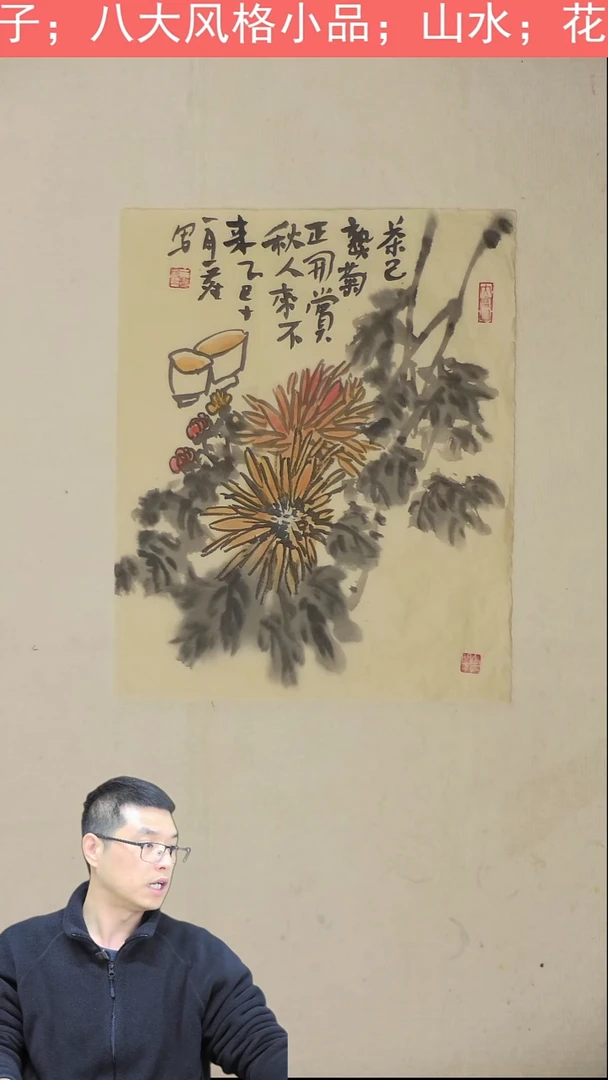 子；八大风格小品；山水；花
茶已
熟菊
正開賞
秋人來不
来乙巳十
一月
写